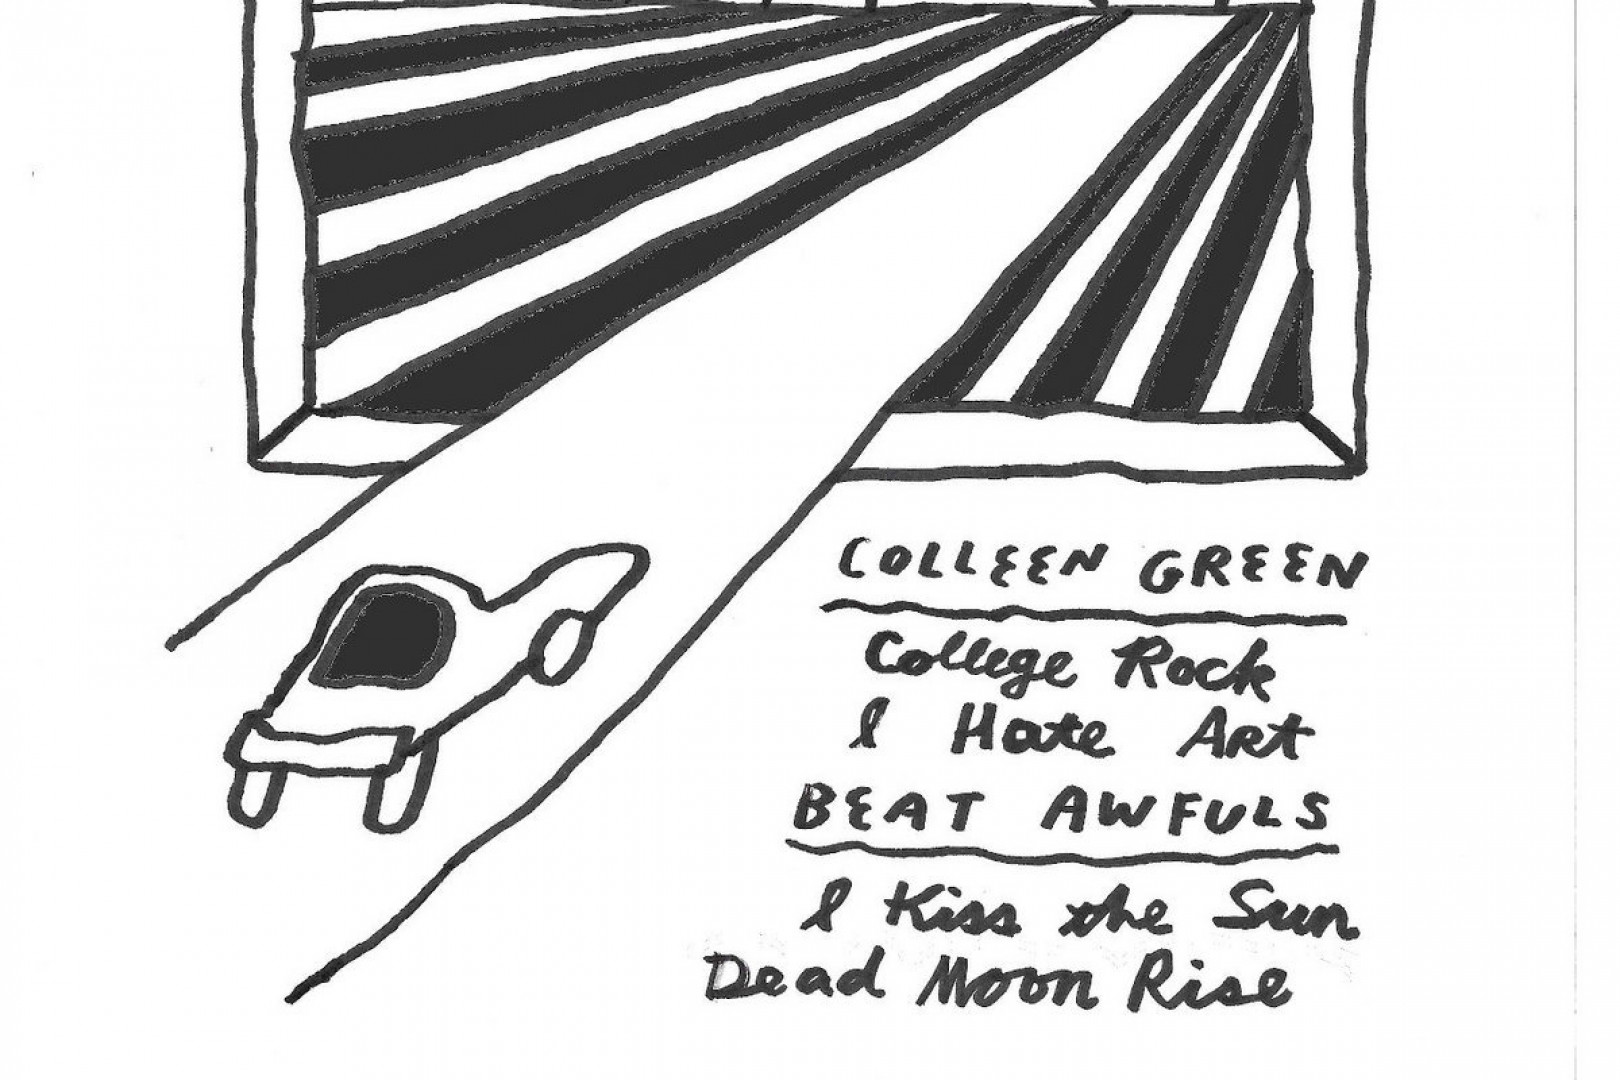 COLLEEN GREEN
College Rock
I Hate Art
BEAT AWFULS
I Kiss the Sun
Dead Moon Rise